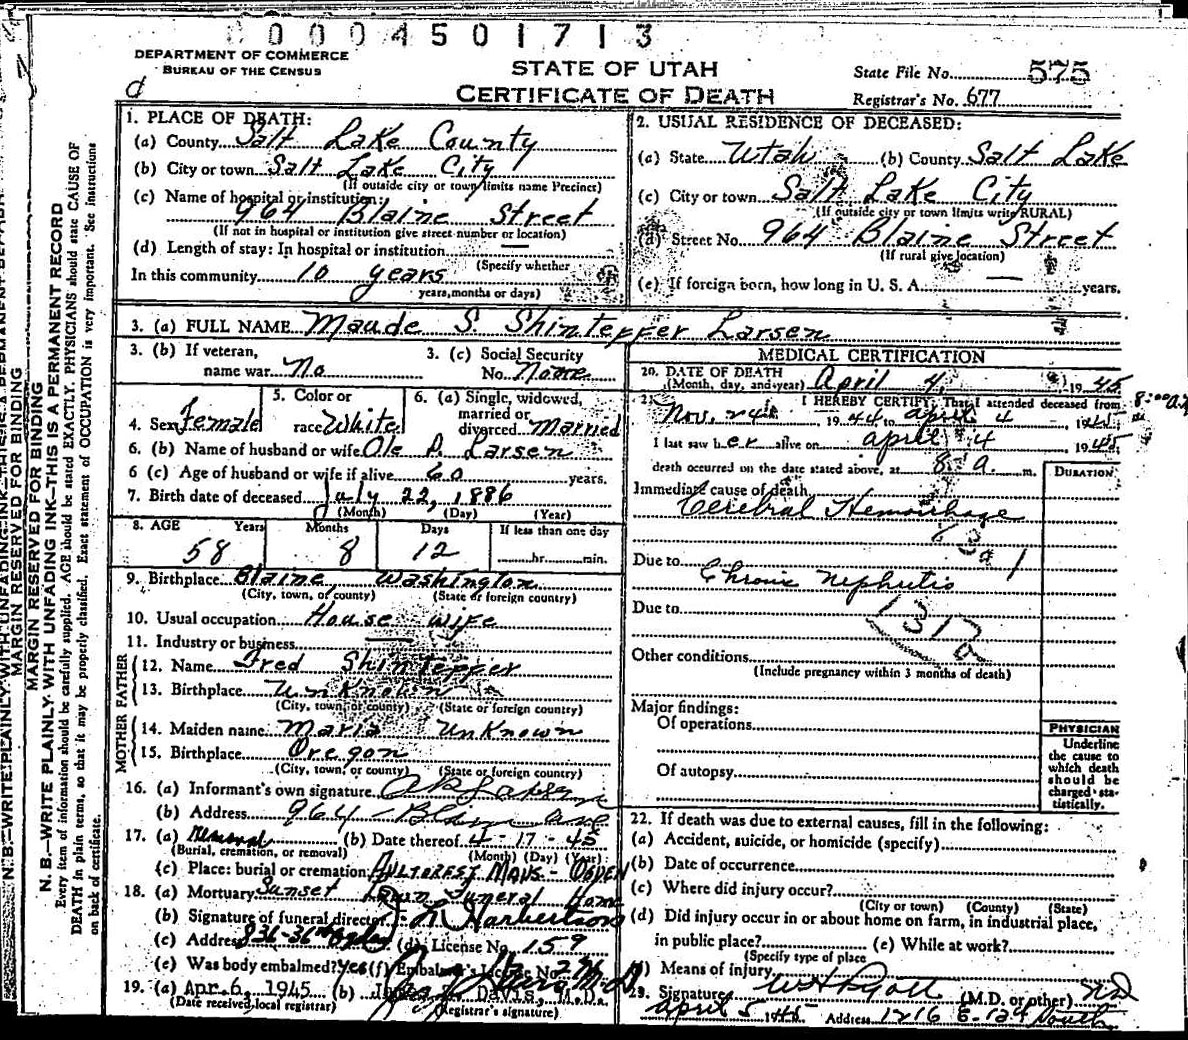 00004501713
DEPARTMENT OF COMMERCE
BUREAU OF THE CENSUS
STATE OF UTAH
CERTIFICATE OF DEATH
State File No. 575
Registrar's No. 677
MARGIN RESERVED FOR BINDING
N. B.—WRITE PLAINLY, WITH UNFADING INK—THIS IS A PERMANENT RECORD
Every item of information should be carefully supplied. AGE should be stated EXACTLY. PHYSICIANS should state CAUSE OF
DEATH in plain terms, so that it may be properly classified. Exact statement of OCCUPATION is very important. See instructions
on back of certificate.
1. PLACE OF DEATH:
(a) County Salt Lake County
(b) City or town Salt Lake City
(If outside city or town limits name Precinct)
(c) Name of hospital or institution:
964 Blaine Street
(If not in hospital or institution give street number or location)
(d) Length of stay: In hospital or institution —
(Specify whether
In this community 10 years
years, months or days)
2. USUAL RESIDENCE OF DECEASED:
(a) State Utah (b) County Salt Lake
(c) City or town Salt Lake City
(If outside city or town limits write RURAL)
(d) Street No. 964 Blaine Street
(If rural give location)
(e) If foreign born, how long in U. S. A. — years.
3. (a) FULL NAME Maude S. Shinteffer Larsen
3. (b) If veteran,
name war No
3. (c) Social Security
No. None
4. Sex Female
5. Color or
race White
6. (a) Single, widowed,
married or
divorced Married
6. (b) Name of husband or wife Ole P. Larsen
6 (c) Age of husband or wife if alive 60 years.
7. Birth date of deceased July 22, 1886
(Month) (Day) (Year)
8. AGE Years Months Days If less than one day
58 8 12 hr. min.
9. Birthplace Blaine Washington
(City, town, or county) (State or foreign country)
10. Usual occupation House wife
11. Industry or business —
FATHER
12. Name Fred Shinteffer
13. Birthplace Unknown
(City, town, or county) (State or foreign country)
MOTHER
14. Maiden name Maria Unknown
15. Birthplace Oregon
(City, town, or county) (State or foreign country)
16. (a) Informant's own signature
(b) Address 964
17. (a) Removal (b) Date thereof 4-17-45
(Burial, cremation, or removal) (Month) (Day) (Year)
(c) Place: burial or cremation Aultorest Maus - Ogden
18. (a) Mortuary Sunset Lawn Funeral Home
(b) Signature of funeral director
(c) Address 836-36th Ogden (d) License No. 159
(e) Was body embalmed? Yes (f) Embalmer's License No. 296
19. (a) Apr. 6, 1945 (b) Davis, M.D.
(Date received local registrar) (Registrar's signature)
MEDICAL CERTIFICATION
20. DATE OF DEATH
(Month, day, and year) April 4, 1945
21. I HEREBY CERTIFY, That I attended deceased from
Nov. 24 1944 to April 4 1945
I last saw her alive on April 4 1945
death occurred on the date stated above, at 8 a. m.
DURATION
Immediate cause of death
Cerebral Hemorrhage
Due to Chronic Nephritis
Due to
Other conditions
(Include pregnancy within 3 months of death)
Major findings:
Of operations
Of autopsy
PHYSICIAN
Underline
the cause to
which death
should be
charged sta-
tistically.
22. If death was due to external causes, fill in the following:
(a) Accident, suicide, or homicide (specify)
(b) Date of occurrence
(c) Where did injury occur?
(City or town) (County) (State)
(d) Did injury occur in or about home on farm, in industrial place,
in public place? (e) While at work?
(Specify type of place
(f) Means of injury
23. Signature (M.D. or other) MD
April 5 1945 Address 1216 E. South